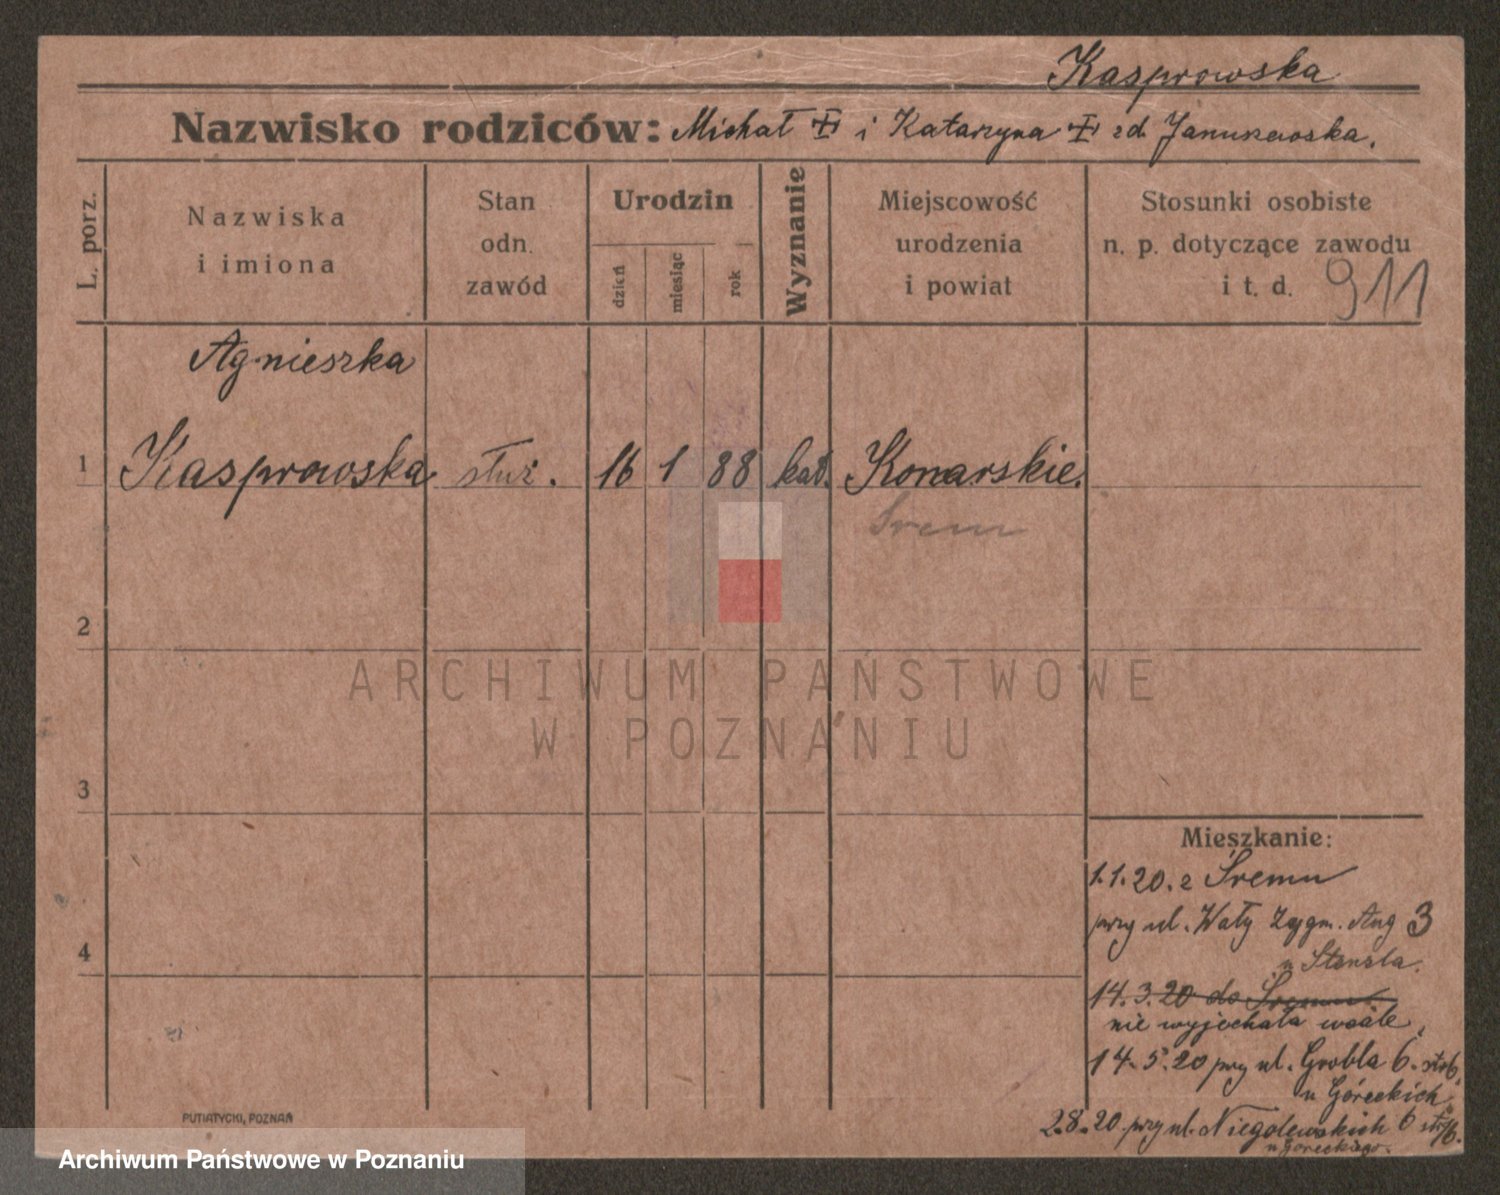 Kasprowska
Nazwisko rodziców: Michał i Katarzyna zd Januszewska.
L. porz.
Nazwiska
i imiona
Stan
odn.
zawód
Urodzin
dzień
miesiąc
rok
Wyznanie
Miejscowość
urodzenia
i powiat
Stosunki osobiste
n. p. dotyczące zawodu
i t. d.
911
Agnieszka
1 Kasprowska służ. 16 1 88 kat. Konarskie.
Śrem
2
ARCHIWUM PAŃSTWOWE
W POZNANIU
3
Mieszkanie:
1.1.20. z Śremu
przy ul. Wały Zygm. Aug 3
u Stensla.
4
14.3.20 do Śremu
nie wyjechała wcale
14.5.20 przy ul. Grobla 6.
u Góreckich
2.8.20. przy ul. Niegolewskich 6
u Goreckiego.
PUTIATYCKI, POZNAŃ
Archiwum Państwowe w Poznaniu